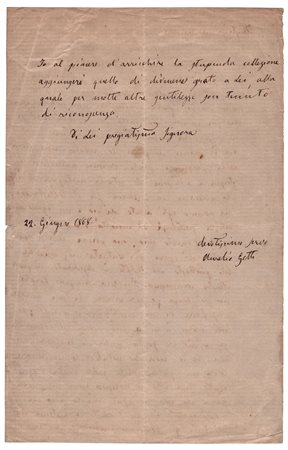 Io al piacere d'arricchire la stupenda collezione
aggiungerò quello di divenire grato a Lei alla
quale per molte altre gentilezze son tenuto
di riconoscenza
Di Lei pregiatissima Signora
22. Giugno 1868
devotissimo servo
Aurelio